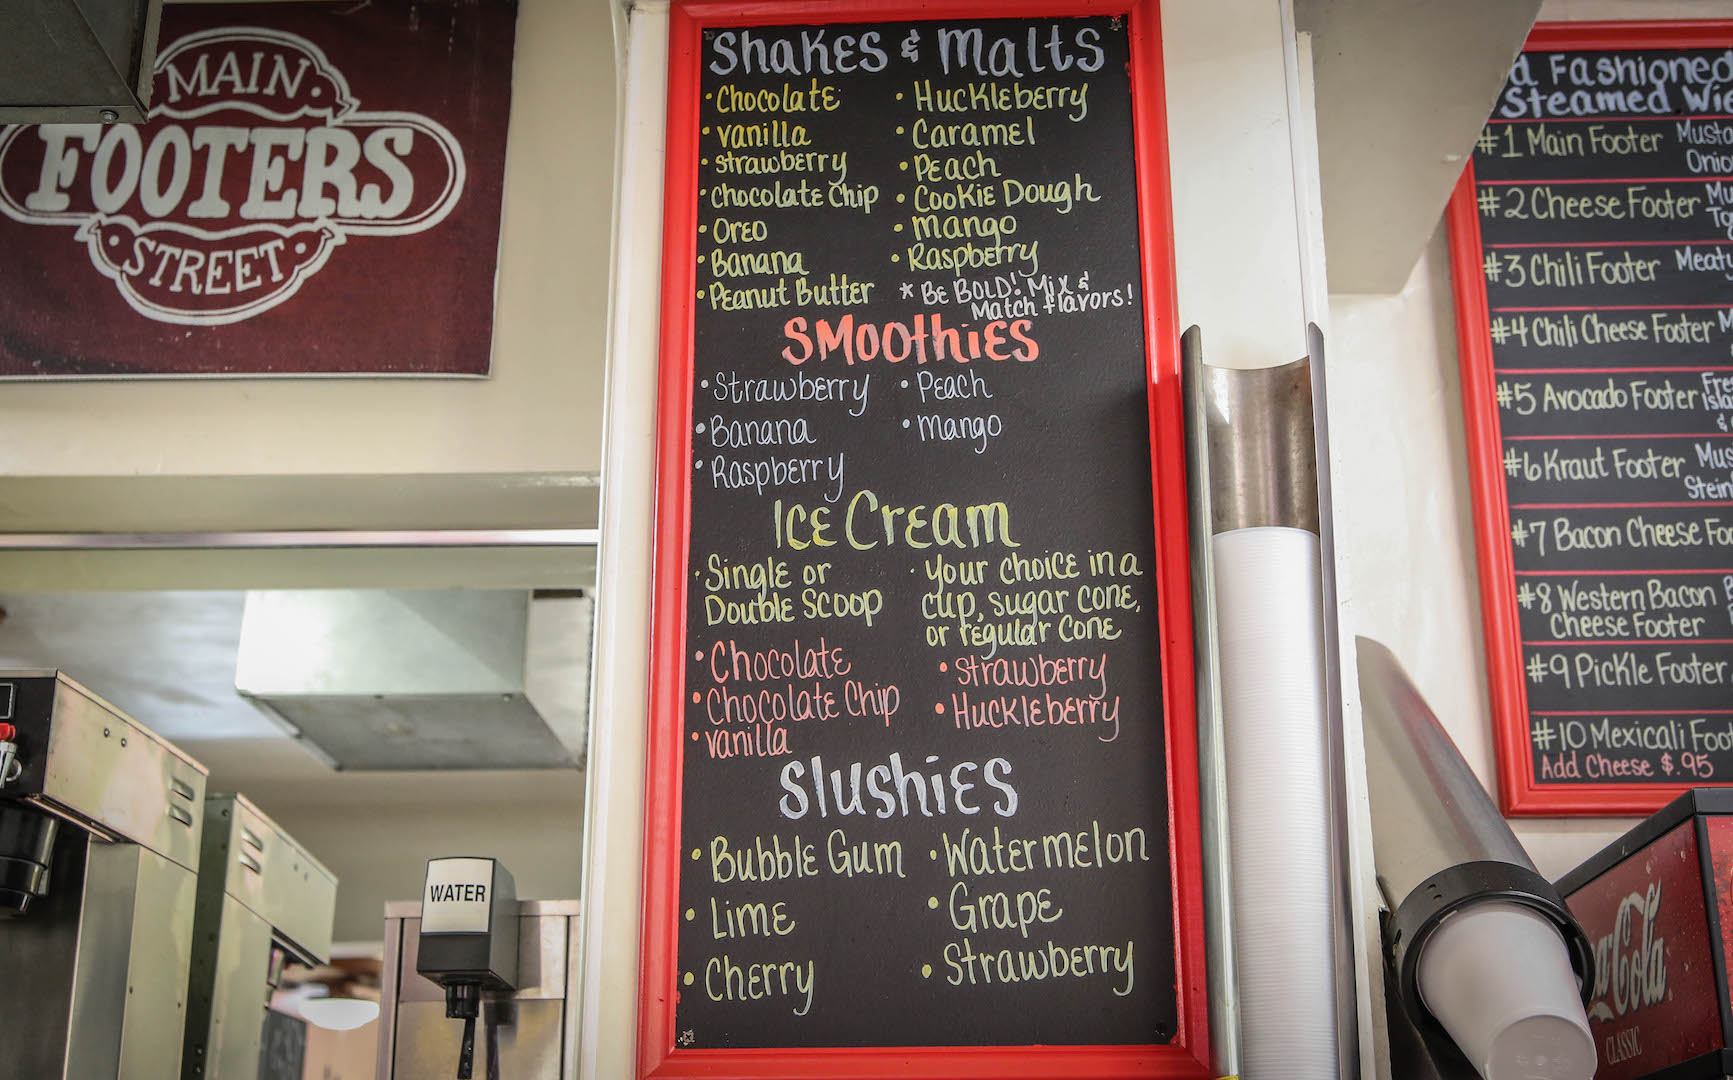 MAIN
FOOTERS
STREET
Shakes & Malts
• Chocolate
• Vanilla
• Strawberry
• Chocolate Chip
• Oreo
• Banana
• Peanut Butter
• Huckleberry
• Caramel
• Peach
• Cookie Dough
• Mango
• Raspberry
* Be BOLD! Mix &
Match flavors!
Smoothies
• Strawberry
• Banana
• Raspberry
• Peach
• Mango
Ice Cream
• Single or
Double Scoop
• Your choice in a
cup, sugar cone,
or regular cone
• Chocolate
• Chocolate Chip
• Vanilla
• Strawberry
• Huckleberry
Slushies
• Bubble Gum
• Lime
• Cherry
• Watermelon
• Grape
• Strawberry
WATER
Fashioned
Steamed
#1 Main Footer
#2 Cheese Footer
#3 Chili Footer
#4 Chili Cheese Footer
#5 Avocado Footer
#6 Kraut Footer
#7 Bacon Cheese
#8 Western Bacon
Cheese Footer
#9 Pickle Footer
#10 Mexicali
Add Cheese $.95
Cola
CLASSIC